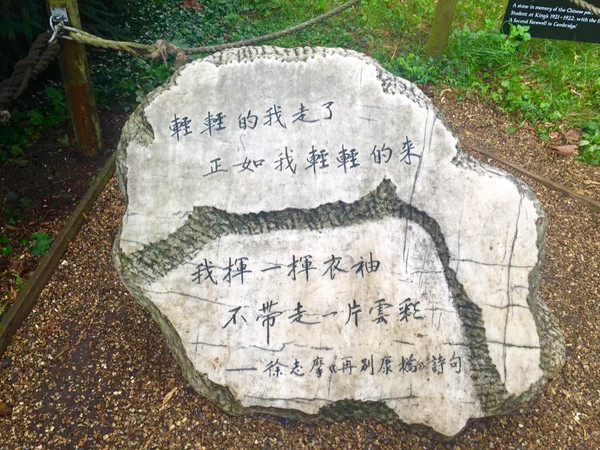 A stone in memory of the Chinese
Student at King's 1921-1922, with the
'A Second Farewell to Cambridge'
輕輕的我走了
正如我輕輕的来
我揮一揮衣袖
不帶走一片雲彩
——徐志摩《再别康橋》詩句